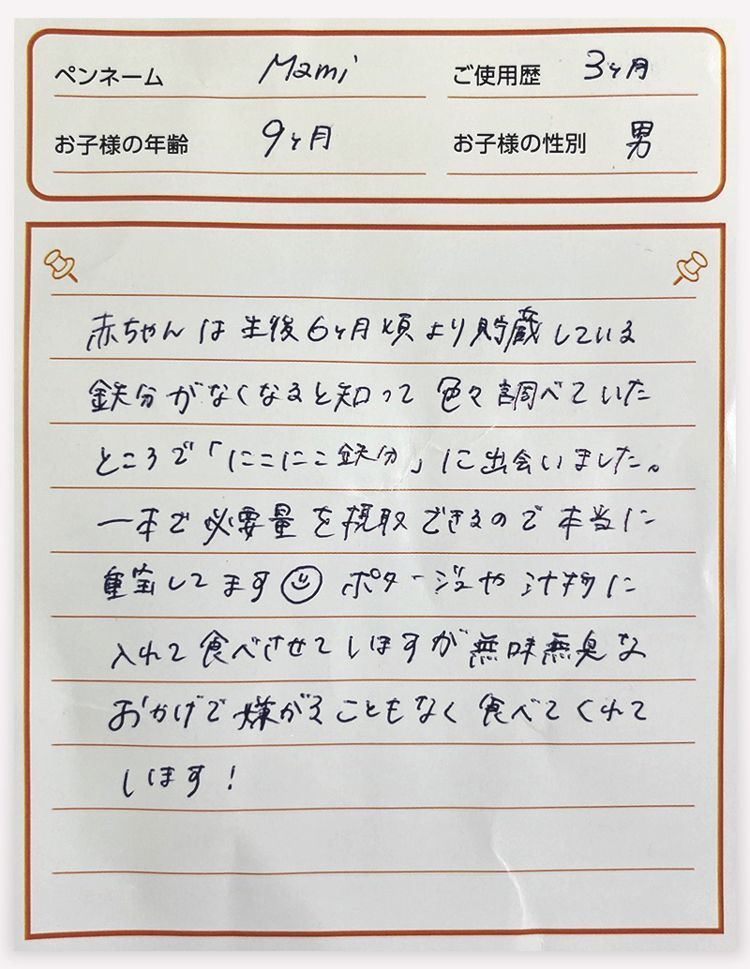 ペンネーム Mami ご使用歴 3ヶ月
お子様の年齢 9ヶ月 お子様の性別 男
赤ちゃんは生後6ヶ月頃より貯蔵している
鉄分がなくなると知って色々調べていた
ところで「にこにこ鉄分」に出会いました。
一本で必要量を摂取できるので本当に
重宝してます ポタージュや汁物に
入れて食べさせてしますが無味無臭な
おかげで嫌がることもなく食べてくれて
します!